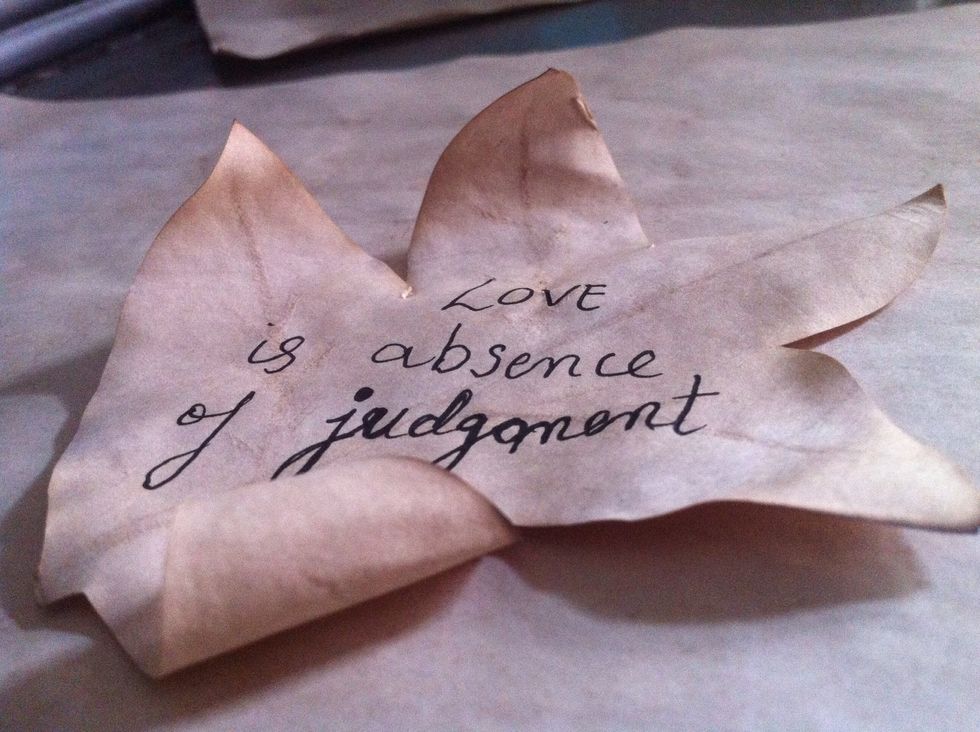 LOVE
is absence
of judgment